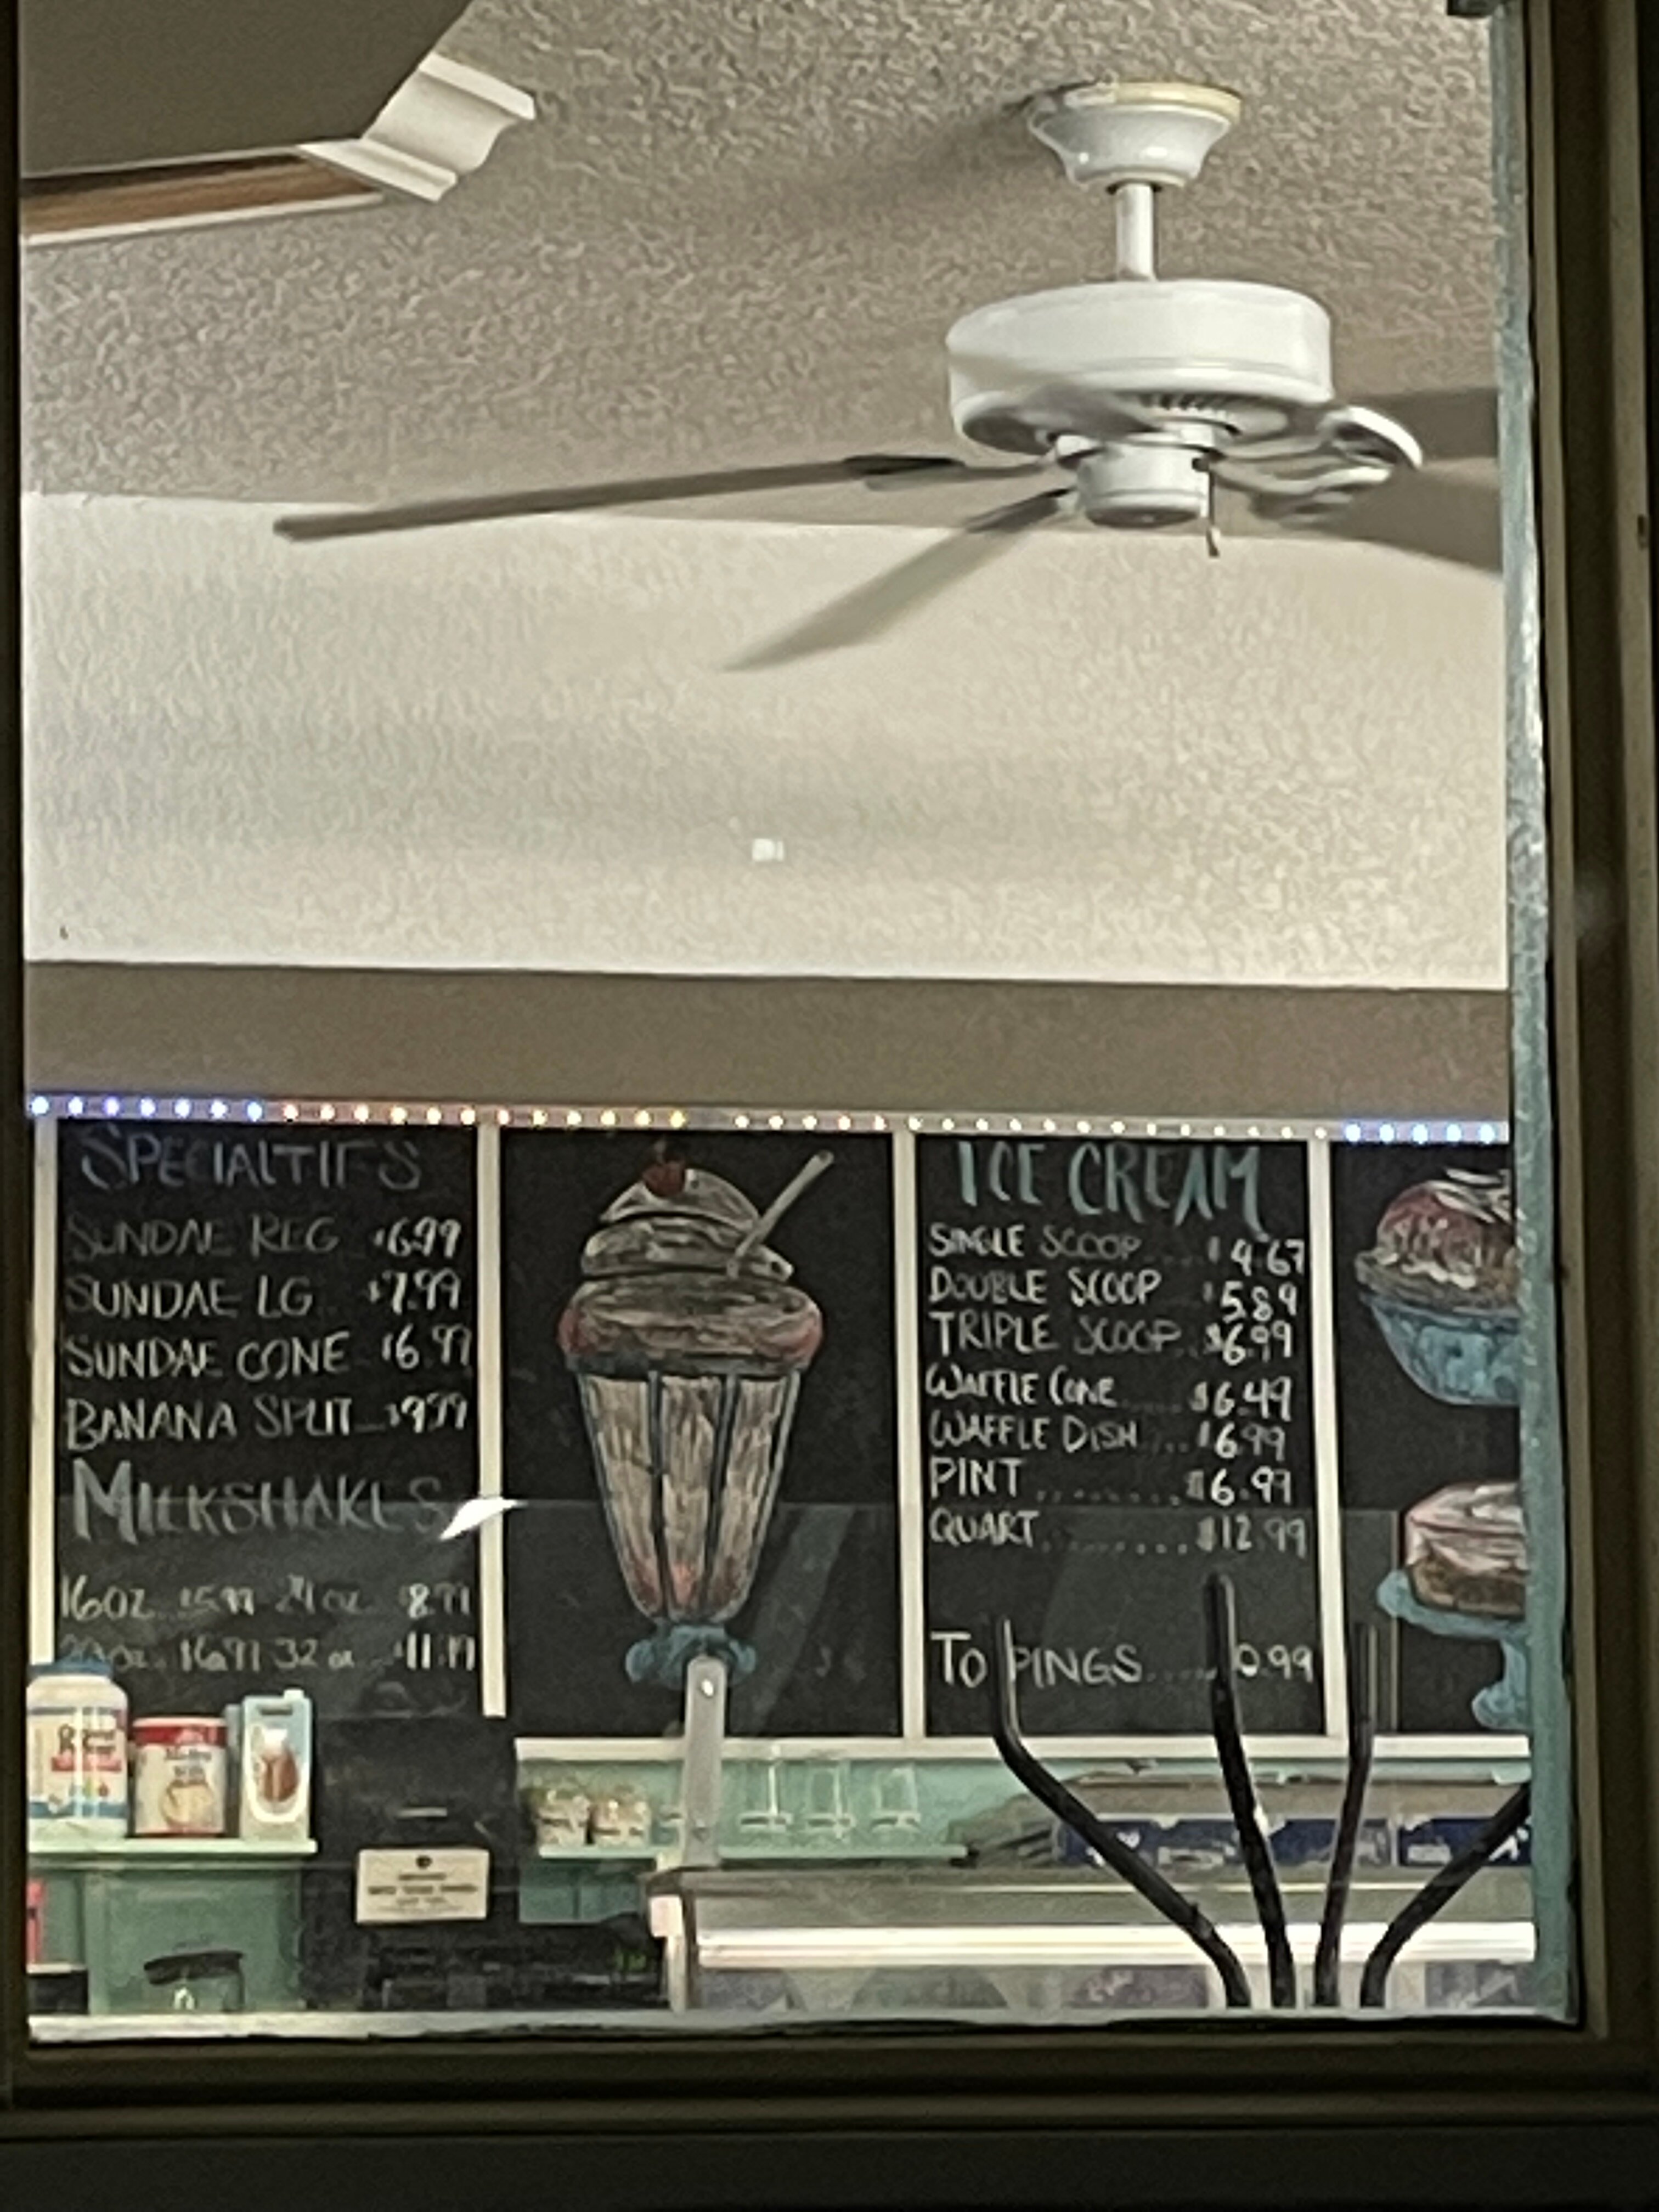 SPECIALTIES
SUNDAE REG $6.99
SUNDAE LG $7.99
SUNDAE CONE $6.99
BANANA SPLIT $9.99
MILKSHAKES
16oz $5.99 24oz $8.99
32oz $11.19
ICE CREAM
SINGLE SCOOP $4.67
DOUBLE SCOOP $5.89
TRIPLE SCOOP $6.99
WAFFLE CONE $6.49
WAFFLE DISH $6.99
PINT $6.99
QUART $12.99
TOPPINGS 0.99